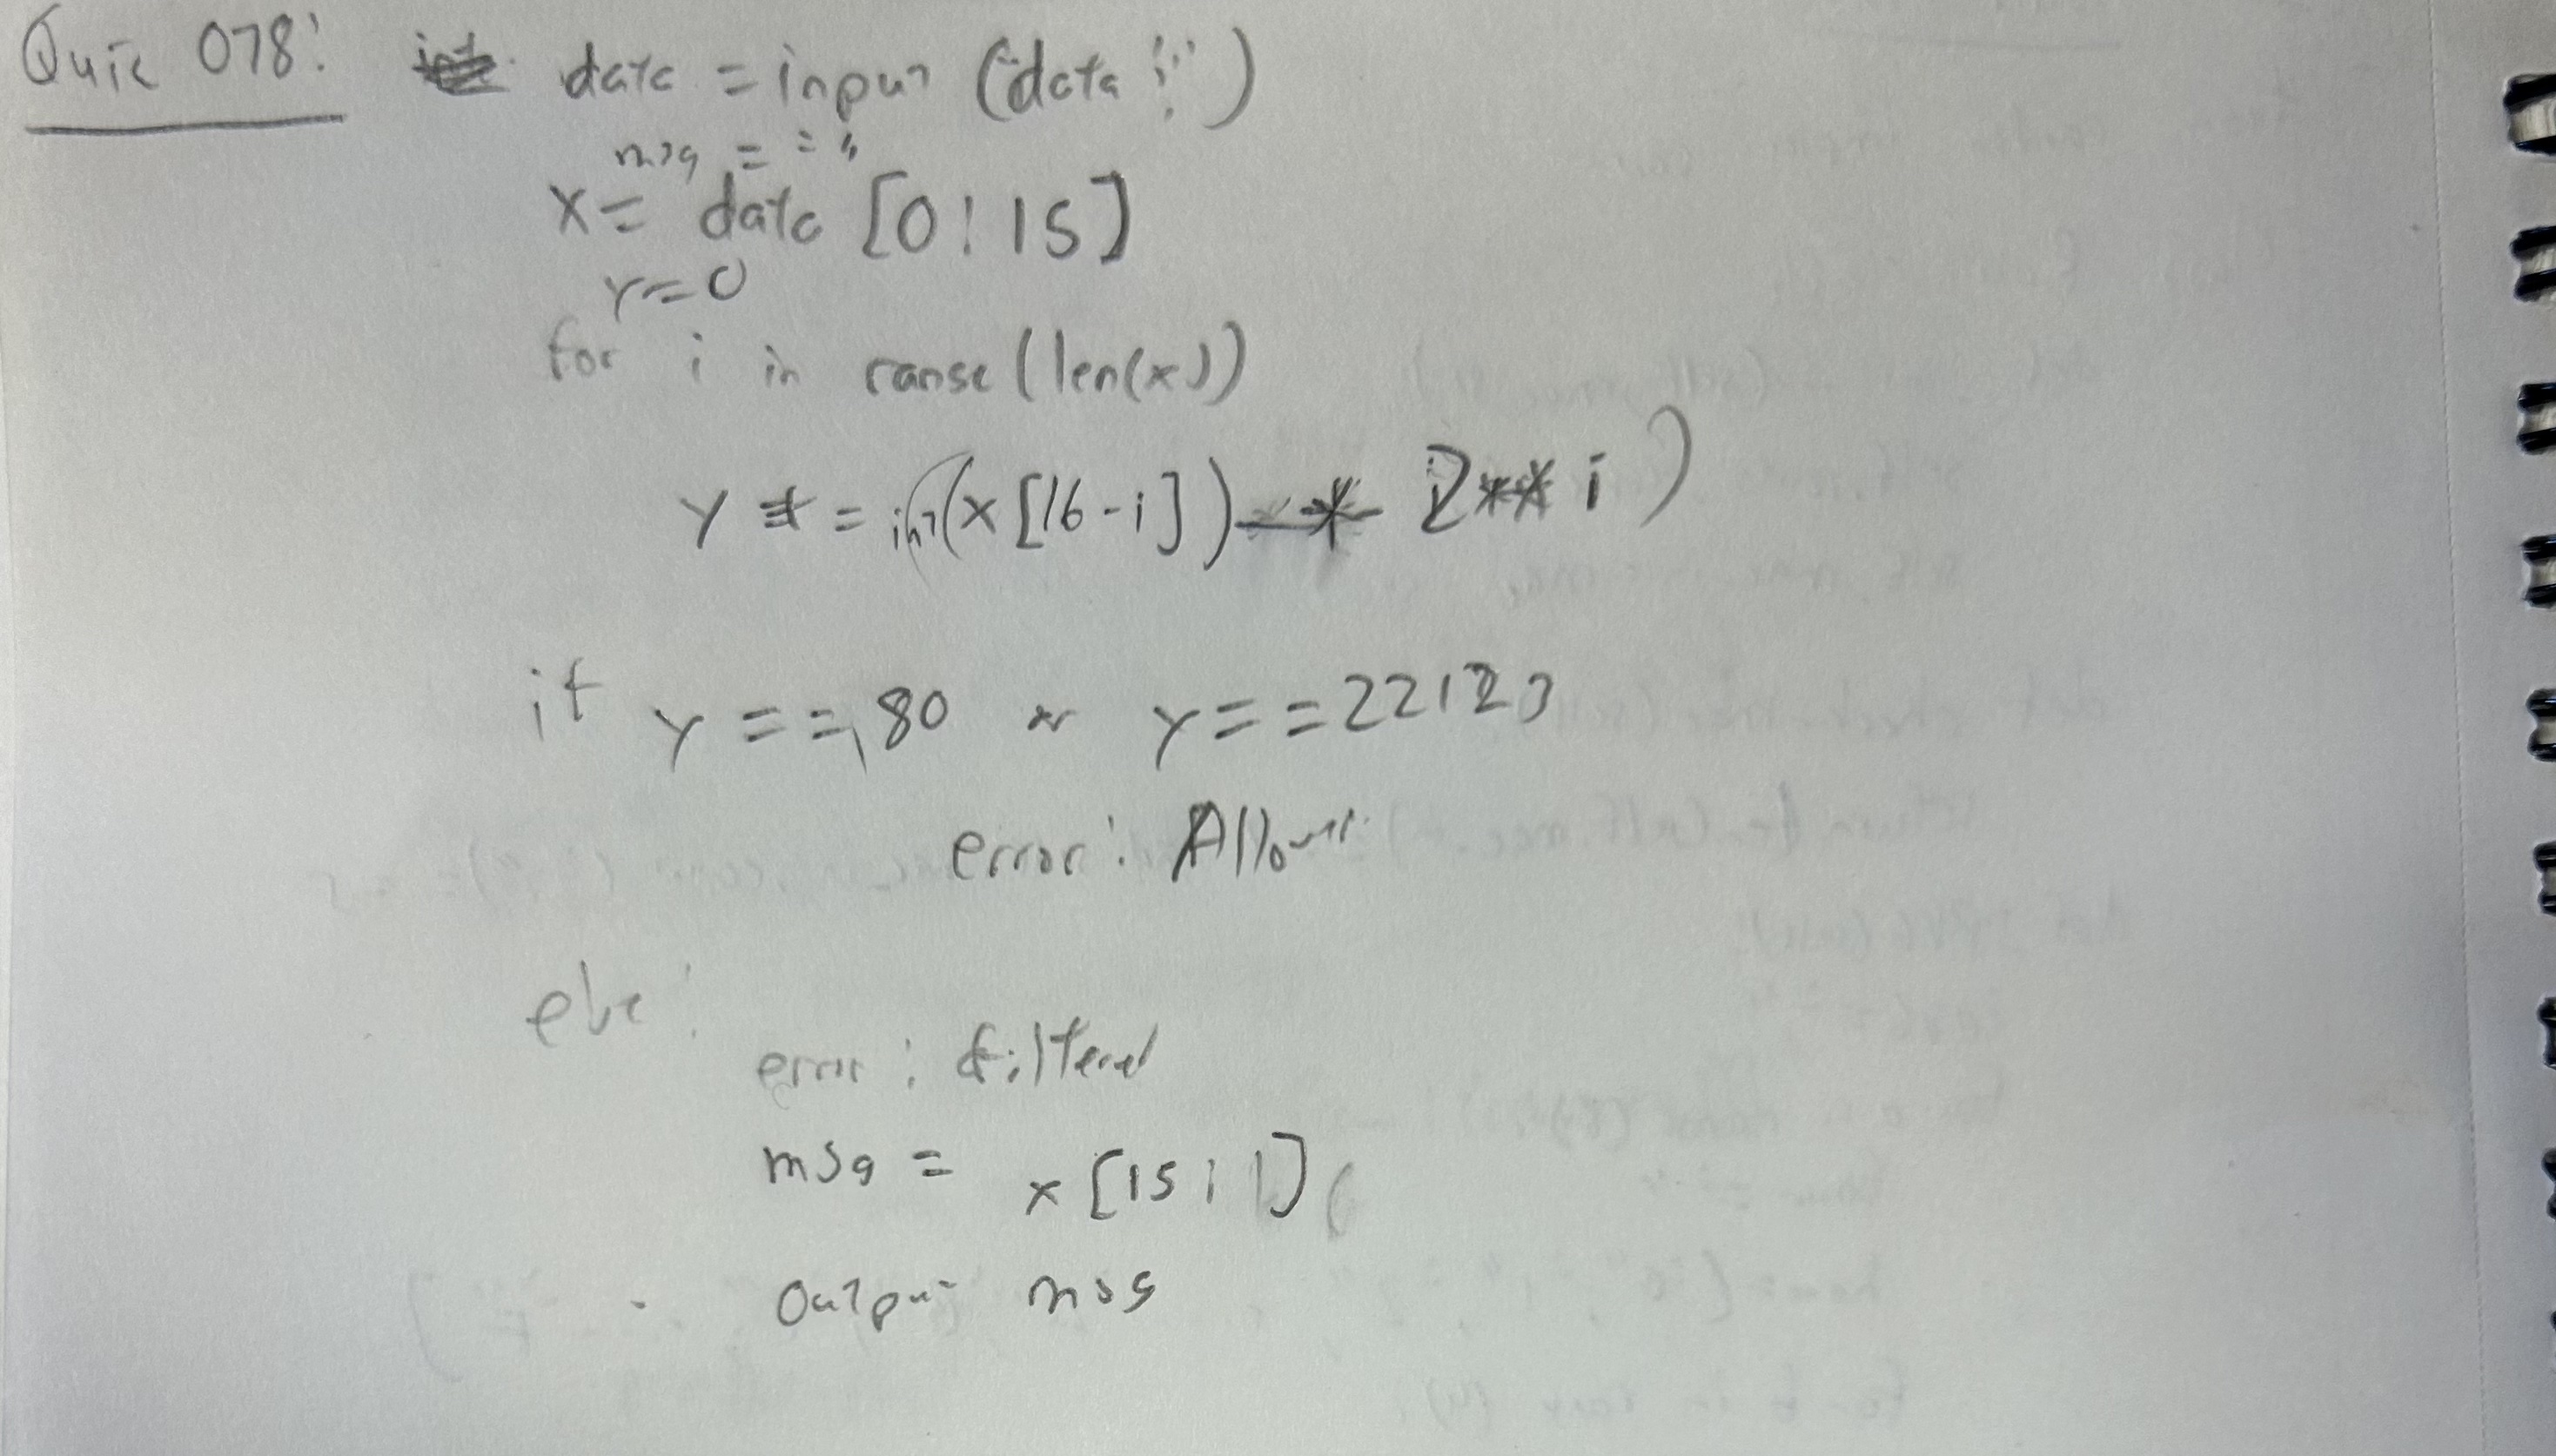 Quic 078:
data = input ("data:")
msg = ""
x = data [0:15]
y=0
for i in range (len(x))
y += int(x[16-i]) * 2**i)
if y == 80 or y == 22123
error: Allow
else:
error: filtered
msg = x[15:]
output msg